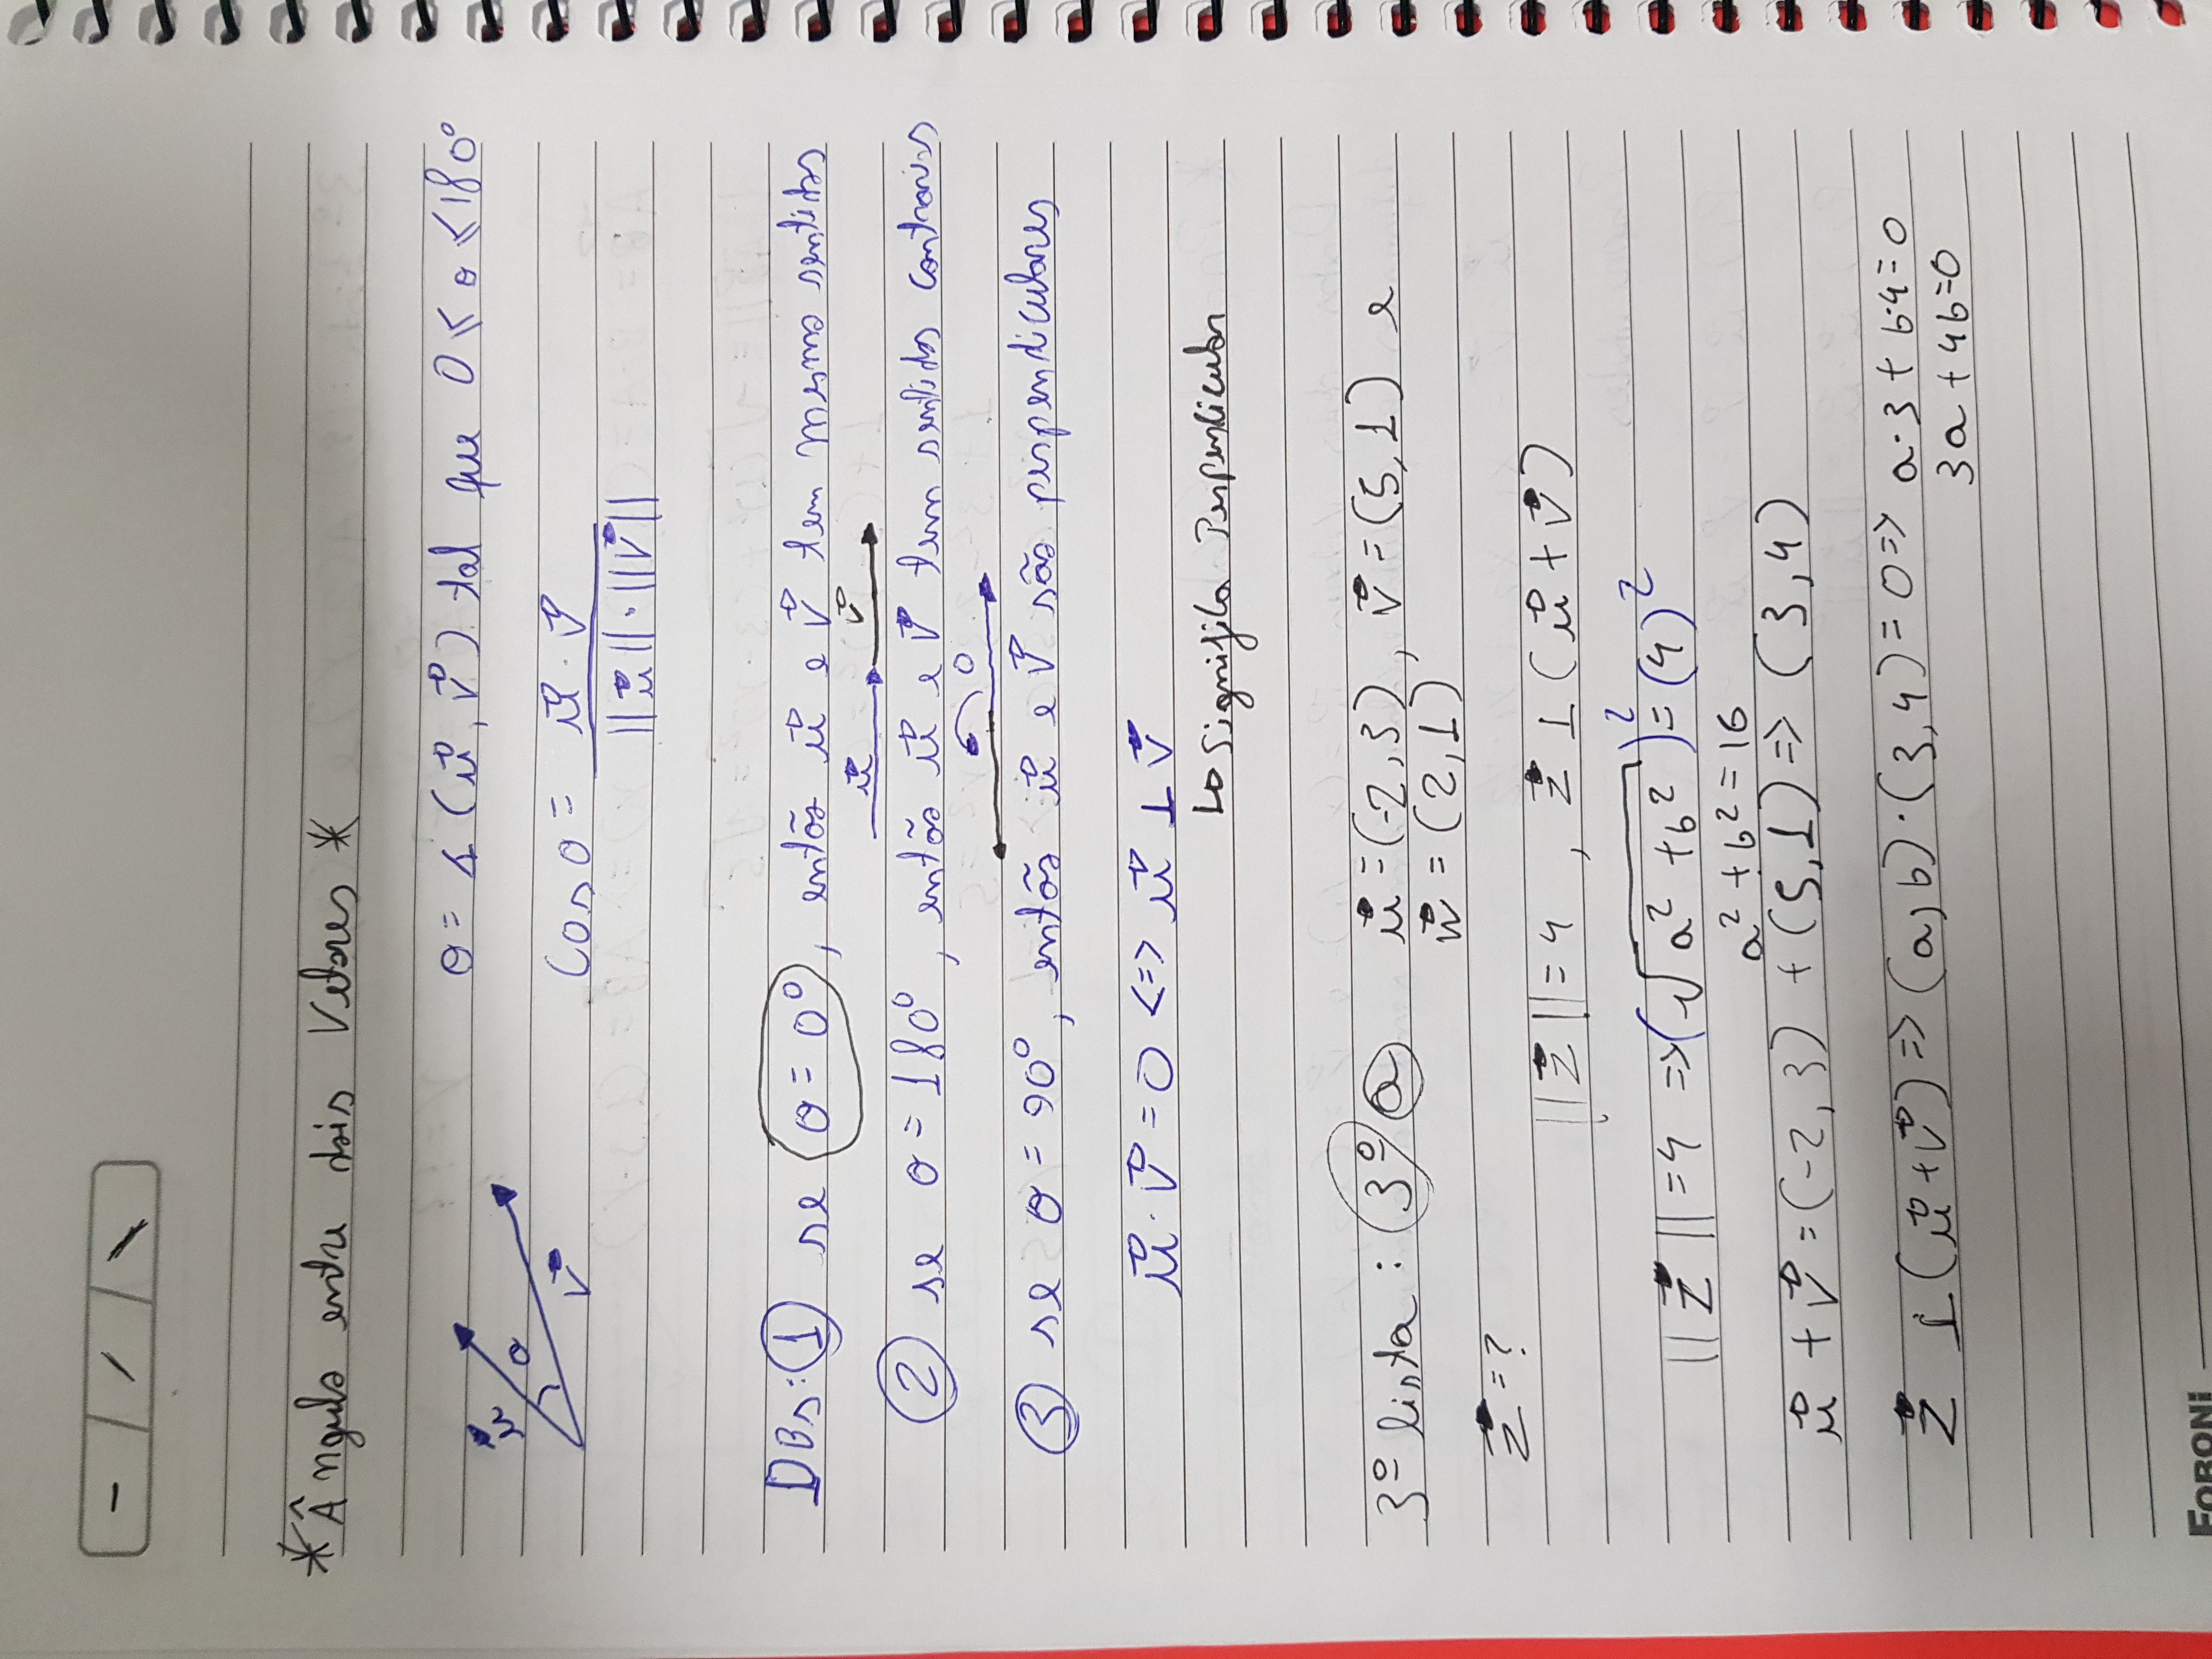 - / \
* Ângulo entre dois Vetores *
θ = ∡ (u⃗, v⃗) tal que 0 ≤ θ ≤ 180°
u⃗ θ v⃗
Cos θ = u⃗ · v⃗
||u⃗|| · ||v⃗||
OBs: 1 se θ = 0°, então u⃗ e v⃗ tem mesmo sentidos
u⃗ v⃗
2 se θ = 180°, então u⃗ e v⃗ tem sentidos contrarios
θ
3 se θ = 90°, então u⃗ e v⃗ são perpendiculares
u⃗ · v⃗ = 0 <=> u⃗ ⊥ v⃗
↳ Significa Perpendicular
3º lista: 3º a u⃗ = (-2, 3), v⃗ = (5, 1) e
w⃗ = (2, 1)
z⃗ = ?
||z⃗|| = 4 , z⃗ ⊥ (u⃗ + v⃗)
||z⃗|| = 4 => (√a² + b²)² = (4)²
a² + b² = 16
u⃗ + v⃗ = (-2, 3) + (5, 1) => (3, 4)
z⃗ ⊥ (u⃗ + v⃗) => (a, b) · (3, 4) = 0 => a·3 + b·4 = 0
3a + 4b = 0
FORONI